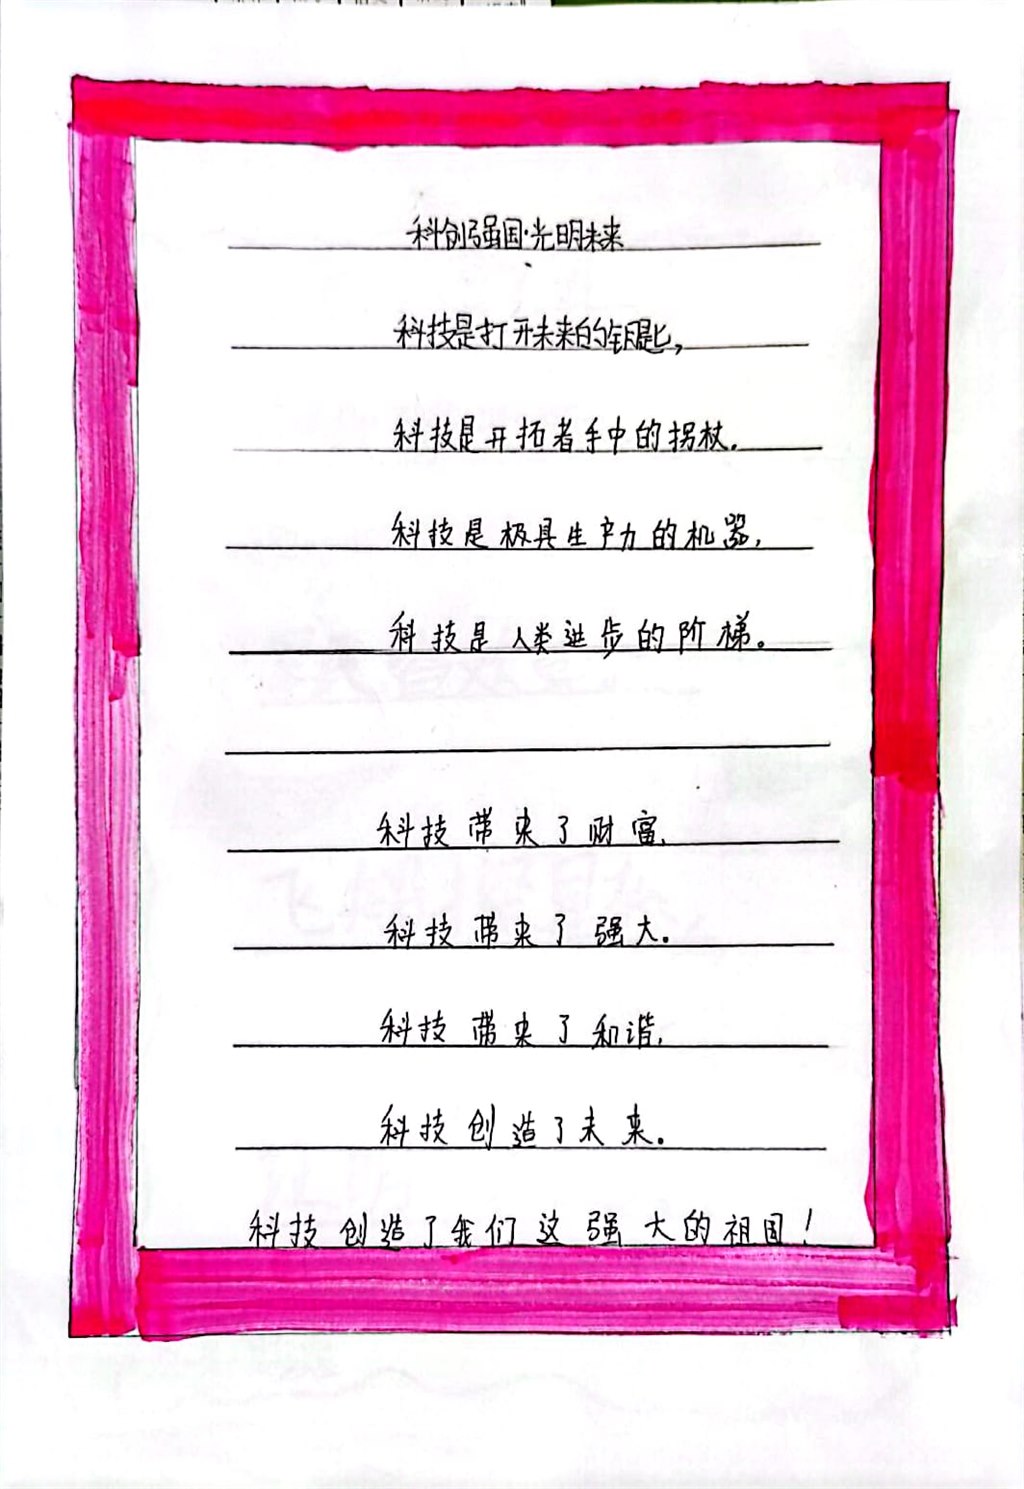 科创强国·光明未来
科技是打开未来的钥匙，
科技是开拓者手中的拐杖。
科技是极具生产力的机器，
科技是人类进步的阶梯。
科技带来了财富，
科技带来了强大。
科技带来了和谐，
科技创造了未来。
科技创造了我们这强大的祖国！